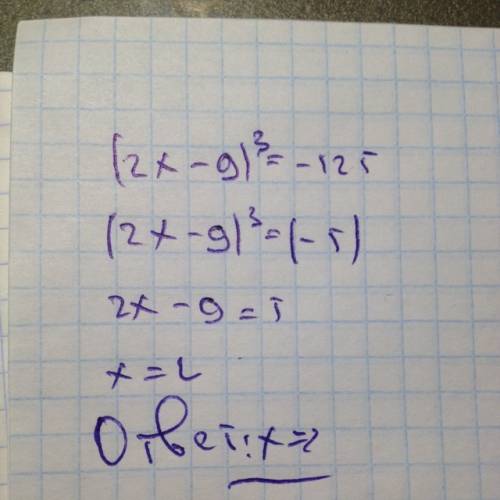 (2x - 9)³ = -125
(2x - 9)³ = (-5)
2x - 9 = 5
x = 2
Ответ: x = 2